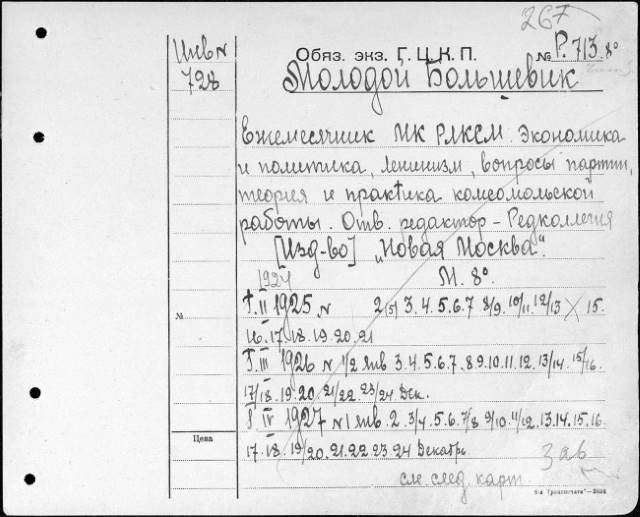 267
Инв N
728
Обяз. экз. Г. Ц. К. П. № Р. 713 8°
Молодой Большевик
Ежемесячник МК РЛКСМ. Экономика
и политика, ленинизм, вопросы партии,
теория и практика комсомольской
работы. Отв. редактор – Редколлегия
[Изд-во] „Новая Москва".
1924 М. 8°.
№ г. II 1925 N 2(5) 3. 4. 5. 6. 7 8/9. 10/11. 12/13 X 15.
16. 17. 18. 19. 20. 21
г. III 1926 N 1/2 янв 3. 4. 5. 6. 7. 8. 9. 10. 11. 12. 13/14. 15/16.
17/18. 19. 20 21/22. 23/24 Дек.
г. IV 1927 N 1 янв. 2. 3/4. 5. 6. 7/8 9/10 11/12. 13. 14. 15. 16.
Цена
17. 18. 19/20. 21. 22 23. 24 Декабрь
см. след. карт